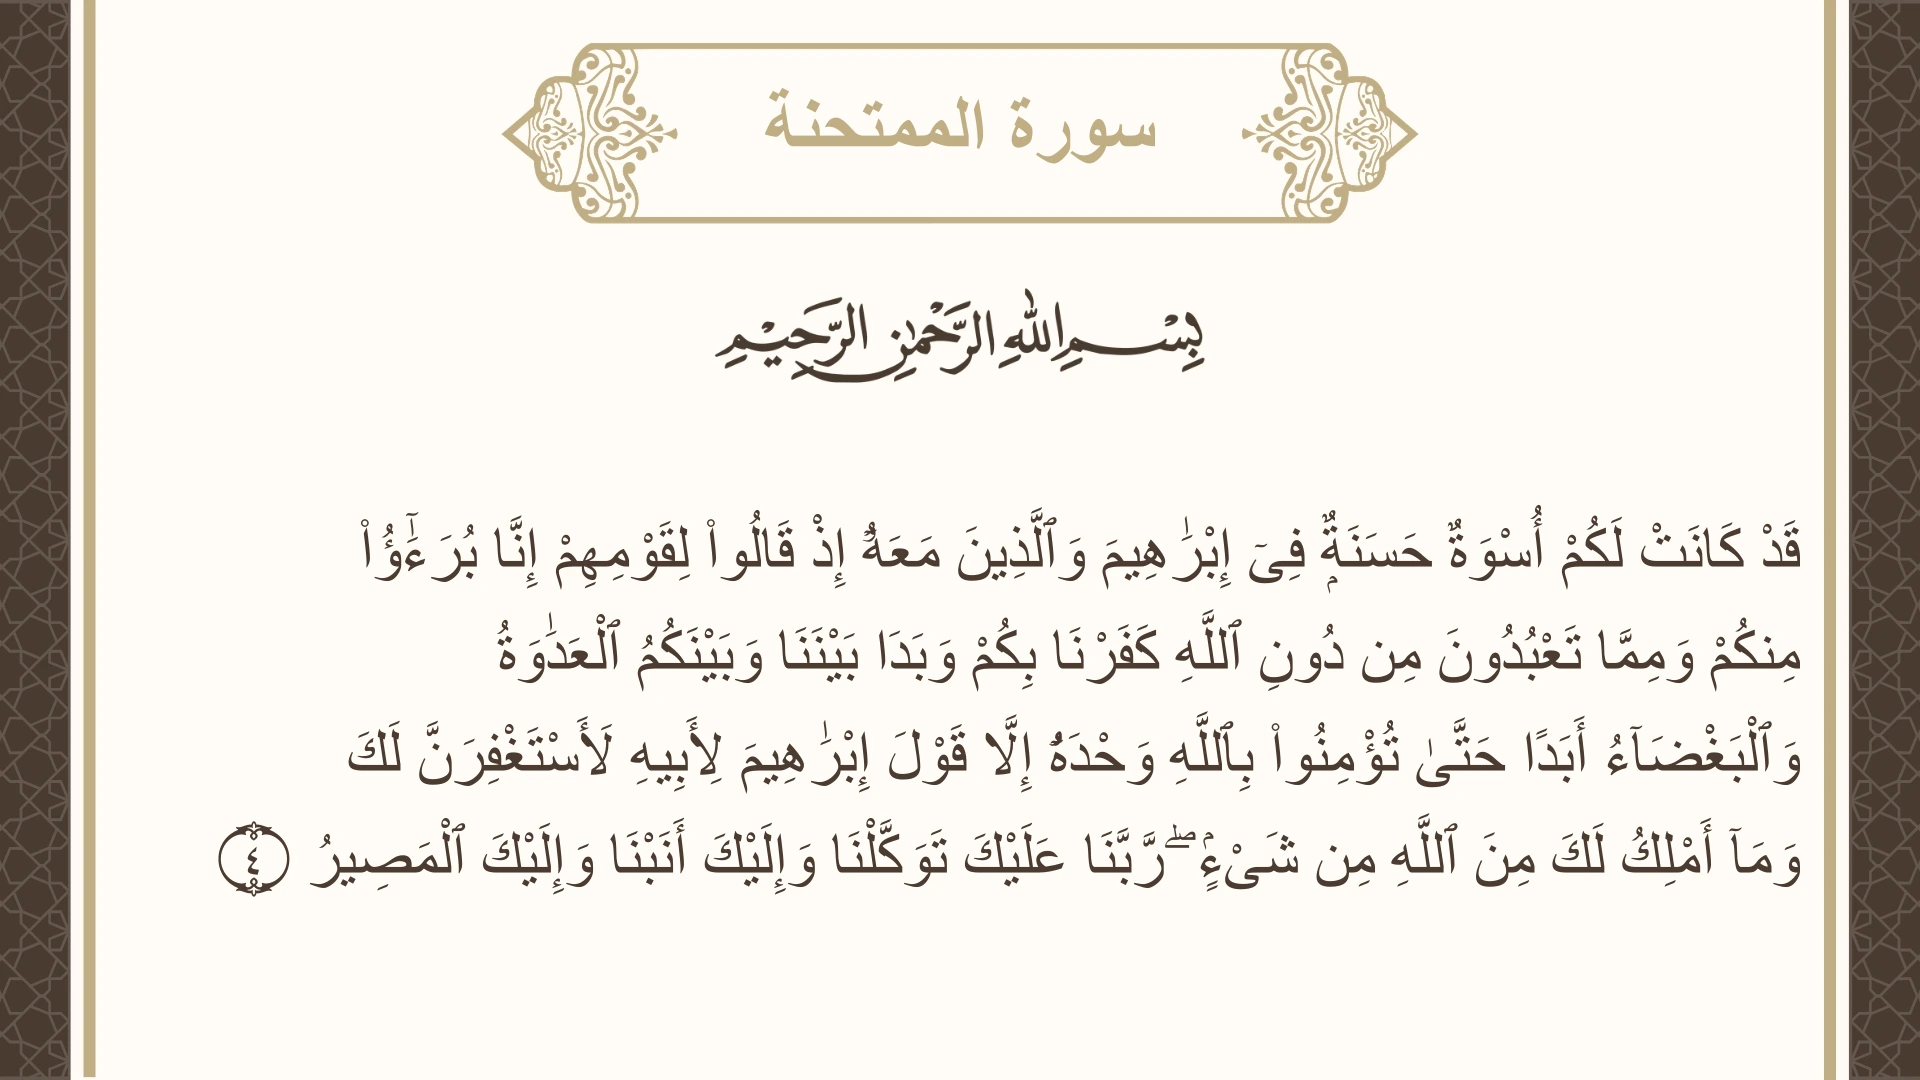 سورة الممتحنة
بِسْمِ اللهِ الرَّحْمٰنِ الرَّحِيْمِ
قَدْ كَانَتْ لَكُمْ أُسْوَةٌ حَسَنَةٌۭ فِىٓ إِبْرَٰهِيمَ وَٱلَّذِينَ مَعَهُۥٓ إِذْ قَالُوا۟ لِقَوْمِهِمْ إِنَّا بُرَءَٰٓؤُا۟
مِنكُمْ وَمِمَّا تَعْبُدُونَ مِن دُونِ ٱللَّهِ كَفَرْنَا بِكُمْ وَبَدَا بَيْنَنَا وَبَيْنَكُمُ ٱلْعَدَٰوَةُ
وَٱلْبَغْضَآءُ أَبَدًا حَتَّىٰ تُؤْمِنُوا۟ بِٱللَّهِ وَحْدَهُۥٓ إِلَّا قَوْلَ إِبْرَٰهِيمَ لِأَبِيهِ لَأَسْتَغْفِرَنَّ لَكَ
وَمَآ أَمْلِكُ لَكَ مِنَ ٱللَّهِ مِن شَىْءٍۢ ۖ رَّبَّنَا عَلَيْكَ تَوَكَّلْنَا وَإِلَيْكَ أَنَبْنَا وَإِلَيْكَ ٱلْمَصِيرُ ٤